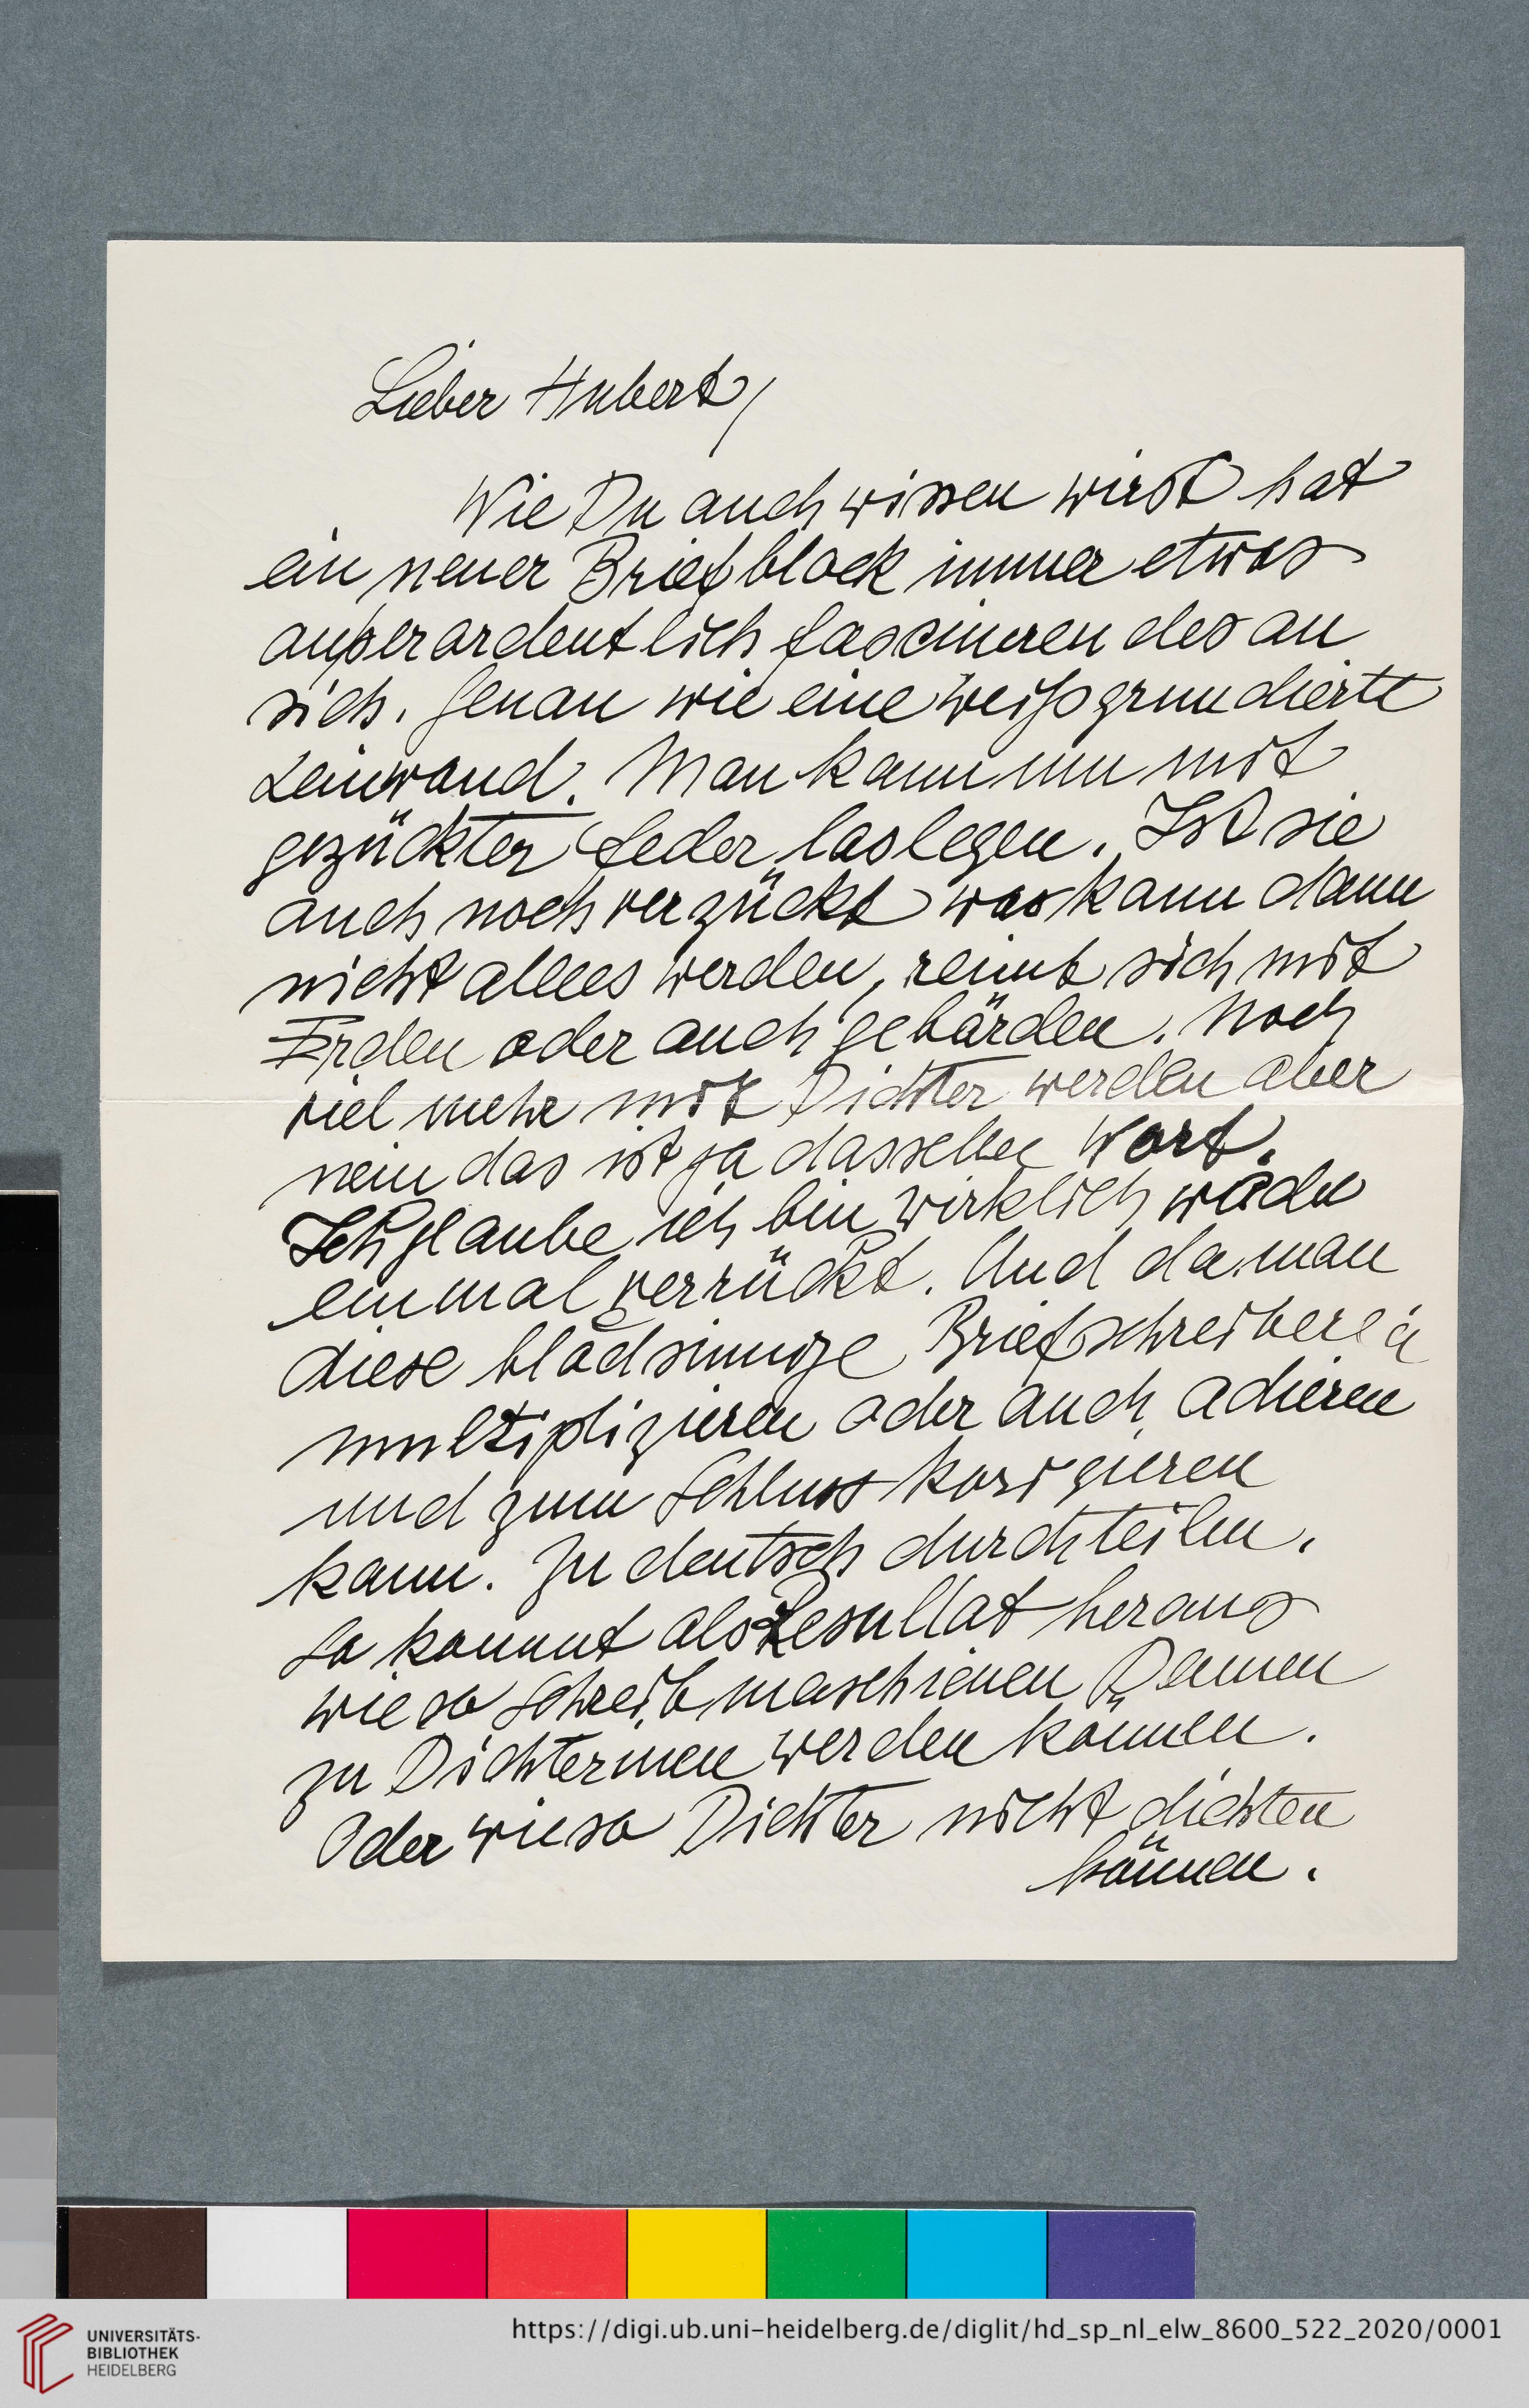 Lieber Hubert,
Wie Du auch wissen wirst hat
ein neuer Briefblock immer etwas
außerordentlich fascinierendes an
sich. Genau wie eine weißgrundierte
Leinwand. Man kann nun mit
gezückter Feder loslegen. Ist sie
auch noch verzückt was kann dann
nicht alles werden, reimt sich mit
Erden oder auch gebärden. Noch
viel mehr mit Dichter werden aber
nein das ist ja dasselbe Wort.
Ich glaube ich bin wirklich
einmal verrückt. Und da man
diese blödsinnige Briefschreiberei
multiplizieren oder auch adieren
und zum Schluss korigieren
kann. Zu deutsch durchteilen.
So kommt als Resultat heraus
wieso Schreibmaschienen Damen
zu Dichterinnen werden können.
Oder wieso Dichter nicht dichten
können.
UNIVERSITÄTS-
BIBLIOTHEK
HEIDELBERG
https://digi.ub.uni-heidelberg.de/diglit/hd_sp_nl_elw_8600_522_2020/0001